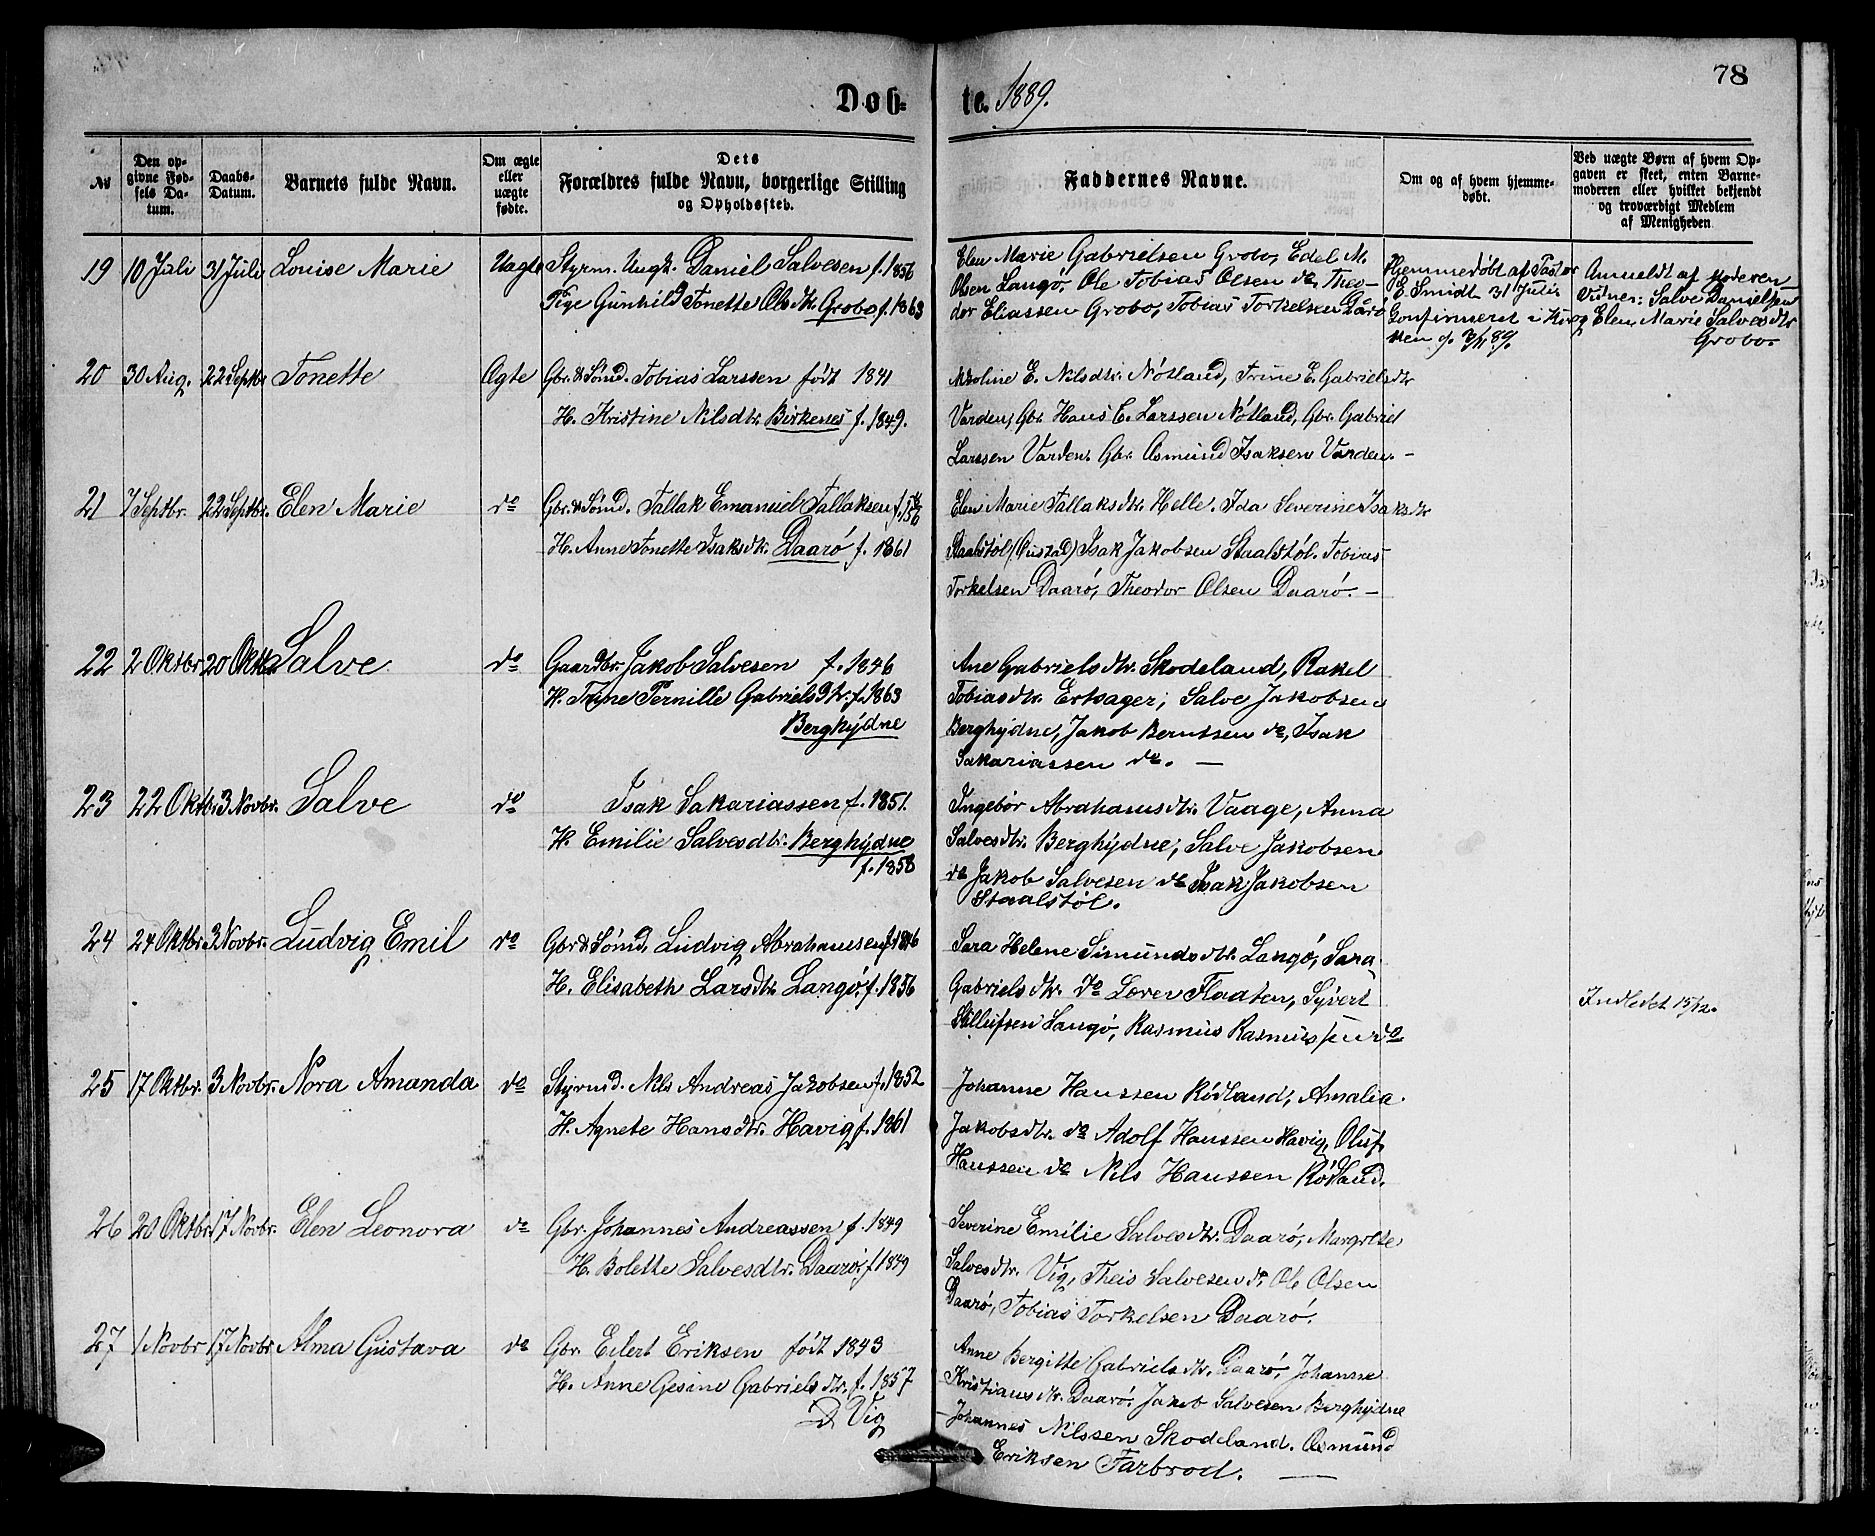 78
Døb- te. 1889.
№
Den opgivne Fødsels Datum.
Daabs-Datum.
Barnets fulde Navn.
Om ægte eller uægte fødte.
Dets Forældres fulde Navn, borgerlige Stilling og Opholdssted.
Faddernes Navne.
Om og af hvem hjemmedøbt.
Ved uægte Børn af hvem Opgaven er skeet, enten Barnemoderen eller hvilket bekjendt og troværdigt Medlem af Menigheden
19 10 Juli 31 Juli Louise Marie Uægte Styrm. Ungk. Daniel Salvesen f. 1856
Pige Gunhild Tonette Olsdtr. Grobo f. 1863
Elen Marie Gabrielsen Grobo, Edel M.
Olsen Langö, Ole Tobias Olsen do, Theo-
dor Eliassen Grobo, Tobias Torkelsen Dårö
Hjemmedöbt af Pastor
E. Smidt 31 Julis
Confirmeret i Kir
ken d.
Anmeldt af Moderen
Vidner: Salve Danielsen
og Elen Marie Salvesdtr
Grobo.
20 30 Aug. 22 Septbr Tonette Ægte Gbr. & Sömd. Tobias Larssen födt 1841
H. Kristine Nilsdtr. Birkenes f. 1849.
E. Nilsdtr. Nötland, Trine E. Gabrielsdtr
Varden, Gbr. Hans E. Larssen Nötland, Gbr. Gabriel
Larssen Varden. Gbr. Osmund Isaksen Varden. -
21 7 Septbr. 22 Septbr. Elen Marie do Gbr. & Sömd. Tallak Emanuel Tallaksen f. 1856
H. Anne Tonette Isaksdtr. Daarö f. 1861
Elen Marie Tallaksdtr. Helle. Ida Severine Isaksdtr
Staalstöl Isak Jakobsen Staalstöl. Tobias
Torkelsen Daarö, Theodor Olsen Daarö. -
22 2 Oktbr 20 Oktbr Salve do Gaardbr. Jakob Salvesen f. 1846
H. Trine Pernille Gabrielsdtr. f. 1863
Berghydne
Ane Gabrielsdtr. Skodeland, Rakel
Tobiasdtr. Ertsager; Salve Jakobsen
Berghydne, Jakob Berntsen do, Isak
Sakariassen do. -
23 22 Oktbr 3 Novbr. Salve do Isak Sakariassen f. 1851.
H. Emilie Salvesdtr. Berghydne
f. 1858
Ingebör Abrahamsdtr. Vaage, Anna
Salvesdtr. Berghydne, Salve Jakobsen
do Jakob Salvesen do Isak Jakobsen
Staalstöl.
24 24 Oktbr 3 Novbr. Ludvig Emil do Gbr & Sömd. Ludvig Abrahamsen f. 1846
H. Elisabeth Larsdtr. Langö, f. 1856
Sara Helene Simundsdtr. Langö, Sara
Gabrielsdtr. do Lærer Flaaten, Syvert
Langö, Rasmus Rasmussen do
Indledet 15/12.
25 17 Oktbr. 3 Novbr. Nora Amanda do Styrmd. Nils Andreas Jakobsen f. 1852
H. Agnete Hansdtr. Havig f. 1861
Johanne Hanssen Rödland, Amalia
Jakobsdtr. do Adolf Hanssen Havig, Oluf
Hanssen do Nils Hanssen Rödland.
26 20 Oktbr. 17 Novbr. Elen Leonora do Gbr. Johannes Andreassen f. 1849
H. Bolette Salvesdtr. Daarö, f 1849
Severine Emilie Salvesdtr. Daarö, Margrete
Salvesdtr. Vig, Theis Salvesen do, Ole Olsen
Daarö, Tobias Torkelsen Daarö.
27 1 Novbr 17 Novbr. Alma Gustava do Gbr. Eilert Eriksen födt 1843
H. Anne Gesine Gabrielsdtr. f. 1857
D. Vig
Anne Bergitte Gabrielsdtr. Daarö, Johanne
Kristiansdtr. Daarö. Jakob Salvesen Berghydne
Johannes Nilssen Skodeland. Osmund
Eriksen Farbrod. -